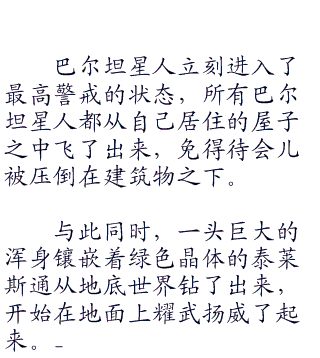 巴尔坦星人立刻进入了
最高警戒的状态，所有巴尔
坦星人都从自己居住的屋子
之中飞了出来，免得待会儿
被压倒在建筑物之下。
与此同时，一头巨大的
浑身镶嵌着绿色晶体的泰莱
斯通从地底世界钻了出来，
开始在地面上耀武扬威了起
来。_